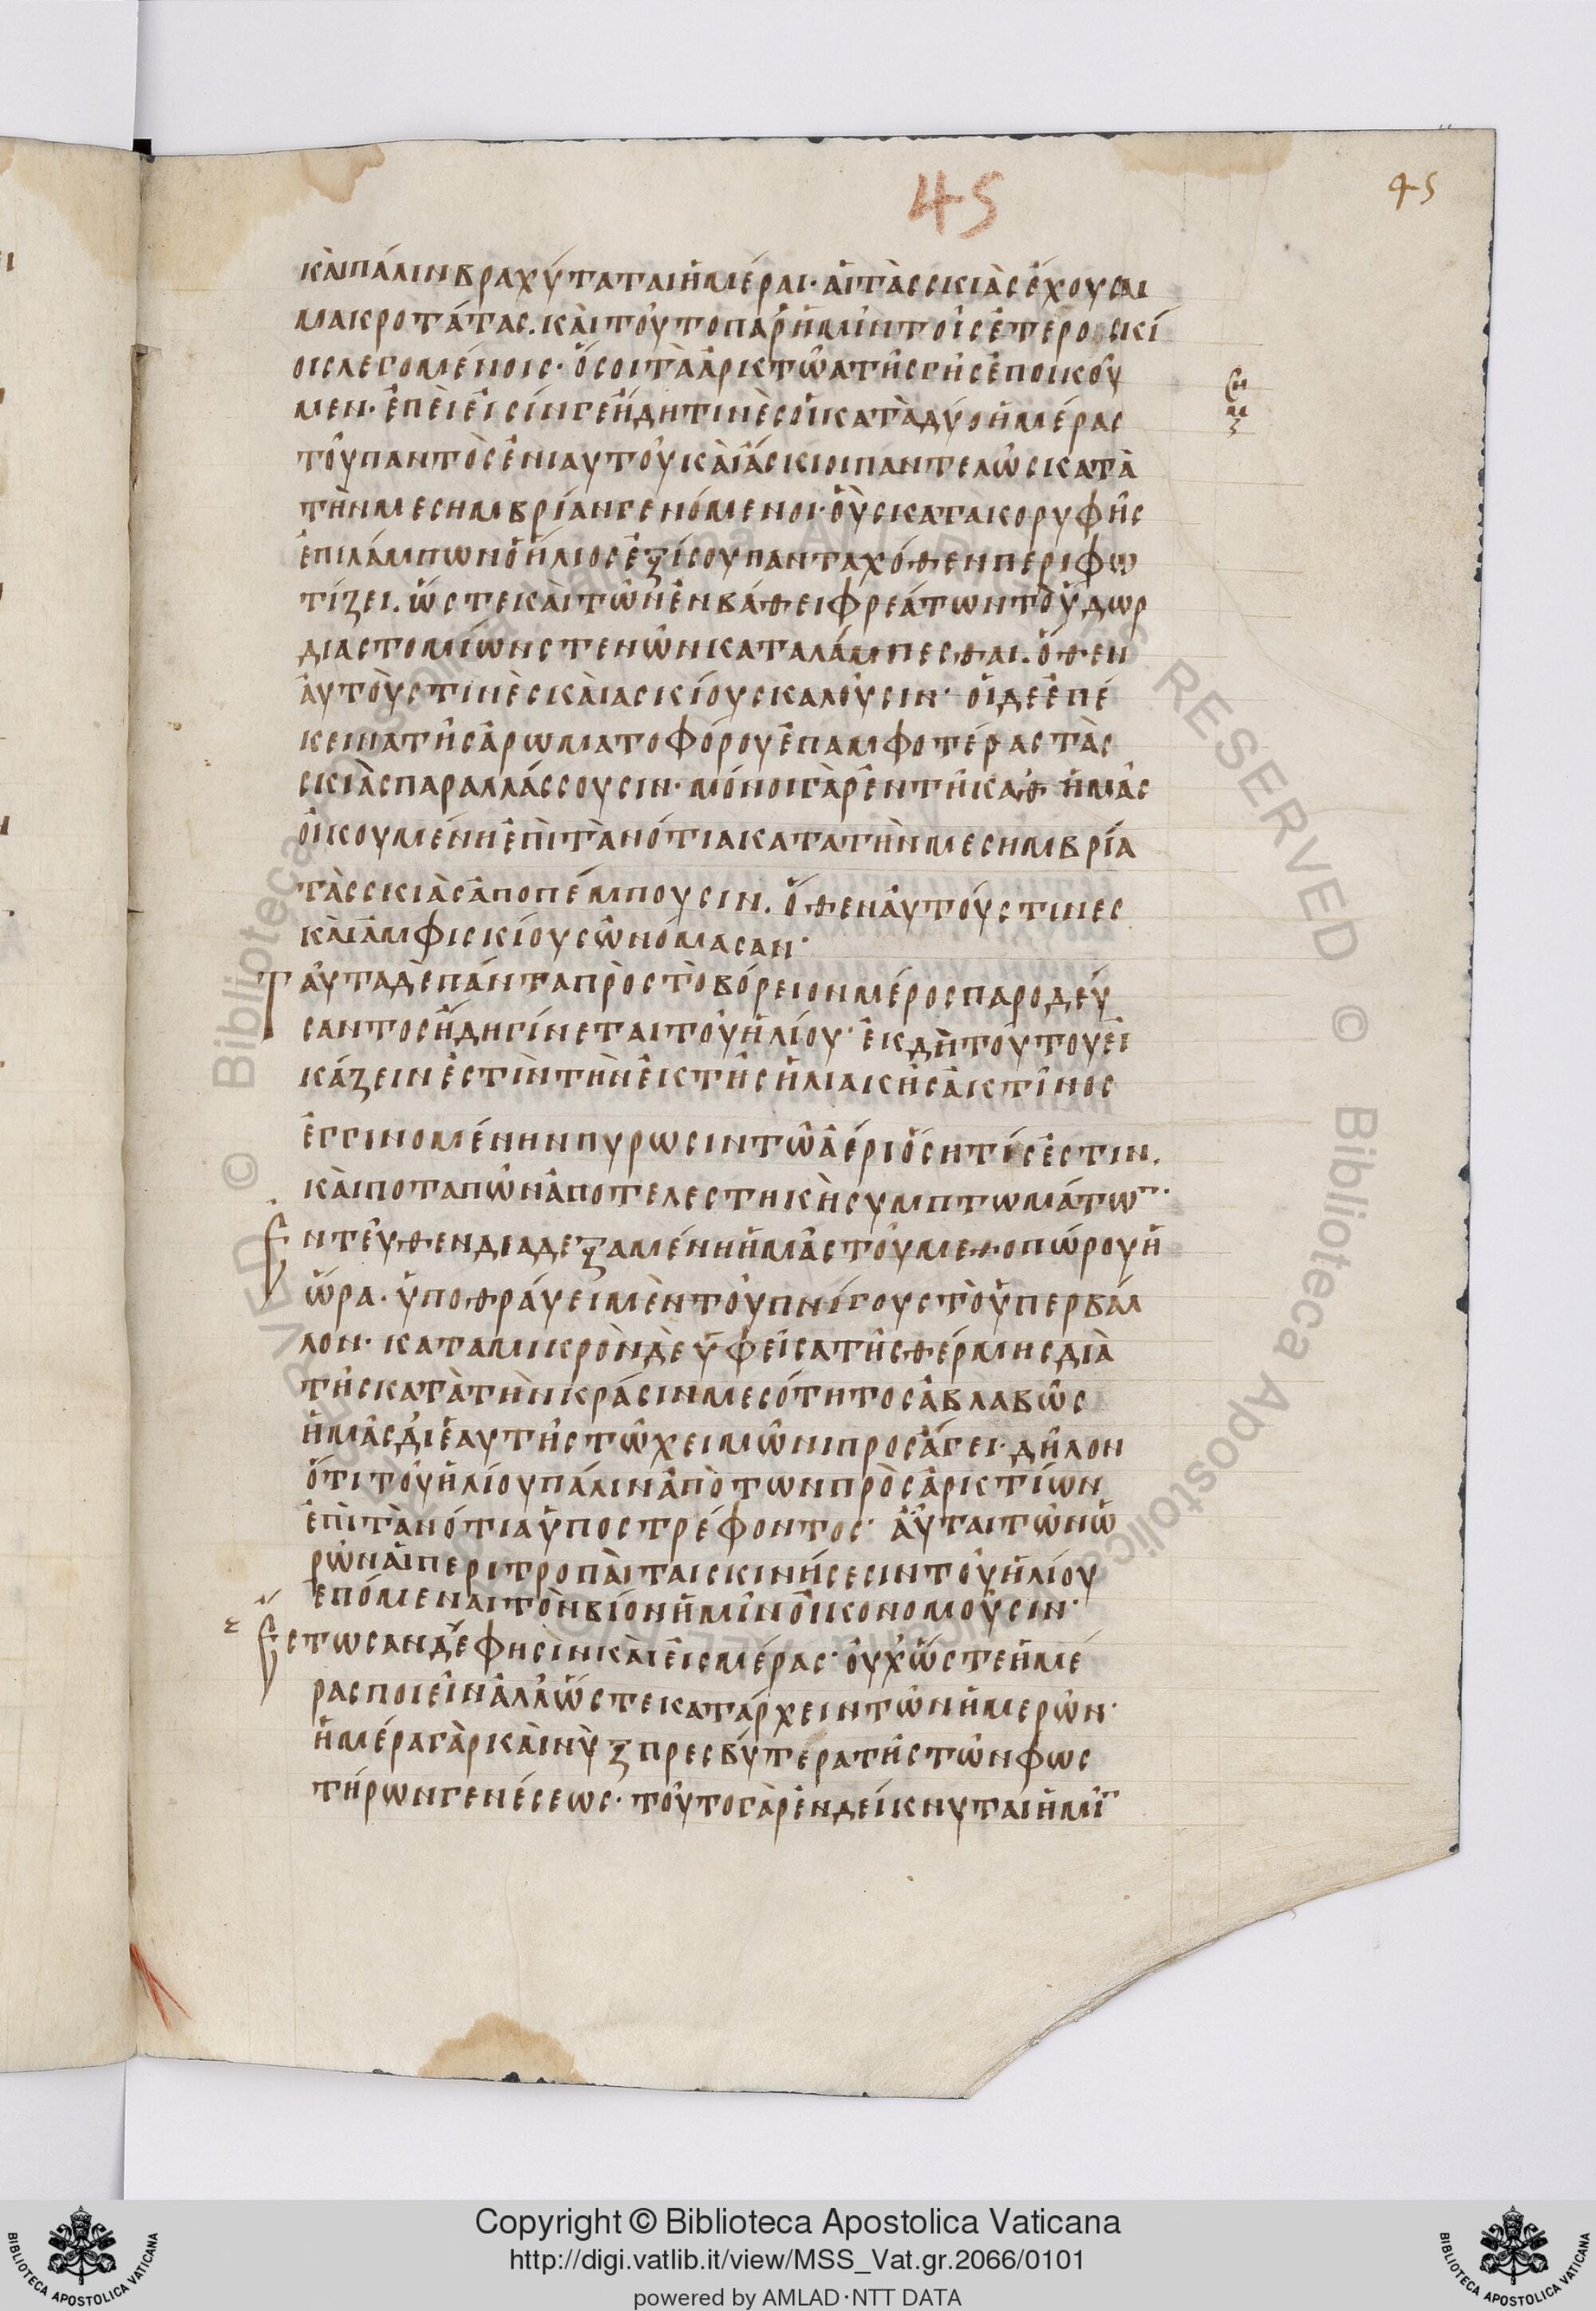 45
45
καὶ πάλιν βραχύταται ἡμέραι· αἱ τὰς σκιὰς ἔχουσαι
μακροτάτας. καὶ τοῦτο παρ' ἡμῖν τοῖς ἑτεροσκί
οις λεγομένοις· ὅσοι τὰ ἀρκτῶα τῆς γῆς ἐποικοῦ
μεν· ἐπεὶ εἰσίν γε ἤδη τινὲς οἳ κατὰ δύο ἡμέρας
τοῦ παντὸς ἐνιαυτοῦ καὶ ἄσκιοι παντελῶς κατὰ
τὴν μεσημβρίαν γενόμενοι· οὓς κατὰ κορυφῆς
ἐπιλάμπων ὁ ἥλιος ἐξίσου πανταχόθεν περιφω
τίζει. ὥστε καὶ τῶν ἐν βάθει φρεάτων τὸ ὕδωρ
διὰ στομίων στενῶν καταλάμπεσθαι. ὅθεν
αὐτοὺς τινὲς καὶ ασκίους καλοῦσιν· οἱ δε ἐπέ
κεινα τῆς ἀρωματοφόρου ἐπ αμφοτέρας τὰς
σκιὰς παραλλάσσουσιν· μόνοι γὰρ ἐν τῇ καθ' ἡμᾶς
οἰκουμένῃ ἐπὶ τὰ νότια κατα τὴν μεσημβρία
τὰς σκιὰς ἀποπέμπουσιν. ὅθεν αὐτούς τινες
καὶ ἀμφισκίους ὠνόμασαν·
Ταῦτα δὲ πάντα πρὸς τὸ βόρειον μέρος παροδεύ
σαντος ἤδη γίνεται τοῦ ἡλίου· ἐκ δὴ τούτου εἰ
κάζειν ἐστὶν τὴν ἐκ τῆς ἡλιακῆς ἀκτῖνος
ἐγγινομένην πυρωσιν τῷ ἀέρι ὅση τίς ἐστιν.
καὶ ποταπῶν ἀποτελεστηκὴ συμπτωμάτων·
Ἐντεῦθεν διαδεξαμένη ἡμᾶς τοῦ μεθοπώρου ἡ
ὥρα· ὑποθραύει μὲν τοῦ πνίγους τὸ ὑπερβάλ
λον· κατα μικρὸν δὲ ὑφεῖσα τῆς θέρμης διὰ
τῆς κατὰ τὴν κράσιν μεσότητος ἀβλαβῶς
ἡμᾶς δι' ἑαυτῆς τῷ χειμῶνι προσάγει· δῆλον
ὅτι τοῦ ἡλίου πάλιν ἀπὸ των πρὸς ἀρκτίων
ἐπὶ τὰ νότια ὑποστρέφοντος· αὗται τῶν ὡ
ρῶν αἱ περιτροπαὶ ταις κινήσεσιν τοῦ ἡλίου
επόμεναι τὸν βίον ἡμῖν οἰκονομοῦσιν·
Ἔστωσαν δέ φησὶν καὶ εἰς μέρας· οὐχ ὥστε ἡμέ
ρας ποιεῖν ἀλλ' ὥστε κατάρχειν τῶν ἡμερῶν·
ἡμέρα γὰρ καὶ νὺξ πρεσβύτερα τῆς τῶν φωσ
τήρων γενέσεως· τοῦτο γὰρ ἐνδείκνυται ἡμῖν
Copyright © Biblioteca Apostolica Vaticana
http://digi.vatlib.it/view/MSS_Vat.gr.2066/0101
powered by AMLAD·NTT DATA
BIBLIOTECA APOSTOLICA VATICANA
BIBLIOTECA APOSTOLICA VATICANA